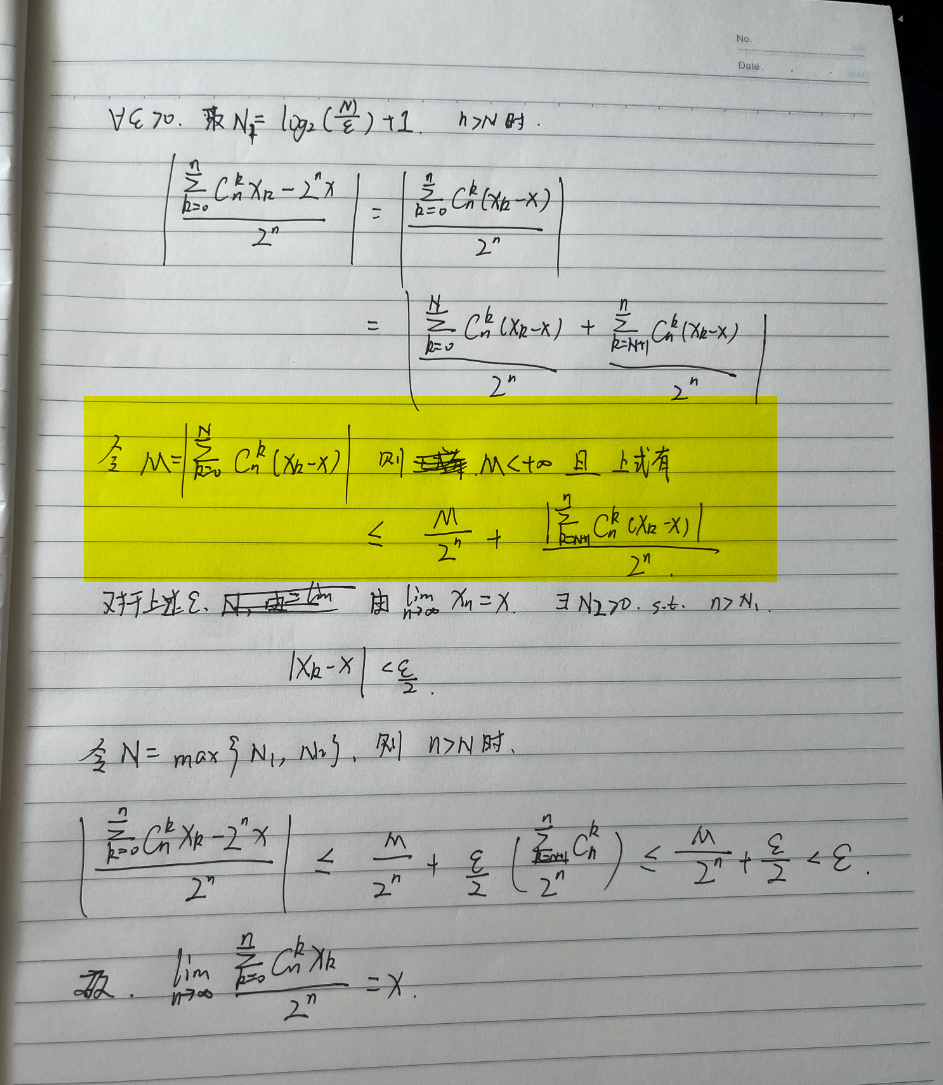 No.
Date.
∀ε>0. 取 N₁= log₂(M/ε)+1. n>N 时.
|(∑_{k=0}^{n} C_n^k x_k − 2ⁿx)/2ⁿ| = |(∑_{k=0}^{n} C_n^k (x_k−x))/2ⁿ|
= |(∑_{k=0}^{N} C_n^k (x_k−x))/2ⁿ + (∑_{k=N+1}^{n} C_n^k (x_k−x))/2ⁿ|
令 M=|∑_{k=0}^{N} C_n^k (x_k−x)| 则 M<+∞ 且 上式有
≤ M/2ⁿ + |∑_{k=N+1}^{n} C_n^k (x_k−x)|/2ⁿ.
对于上述ε. 由 lim_{n→∞} x_n=x. ∃ N₂>0. s.t. n>N₁.
|x_k−x| <ε/2.
令 N= max{N₁, N₂}, 则 n>N 时.
|(∑_{k=0}^{n} C_n^k x_k − 2ⁿx)/2ⁿ| ≤ M/2ⁿ + ε/2 (∑_{k=N+1}^{n} C_n^k/2ⁿ) ≤ M/2ⁿ + ε/2 < ε.
故. lim_{n→∞} (∑_{k=0}^{n} C_n^k x_k)/2ⁿ = x.